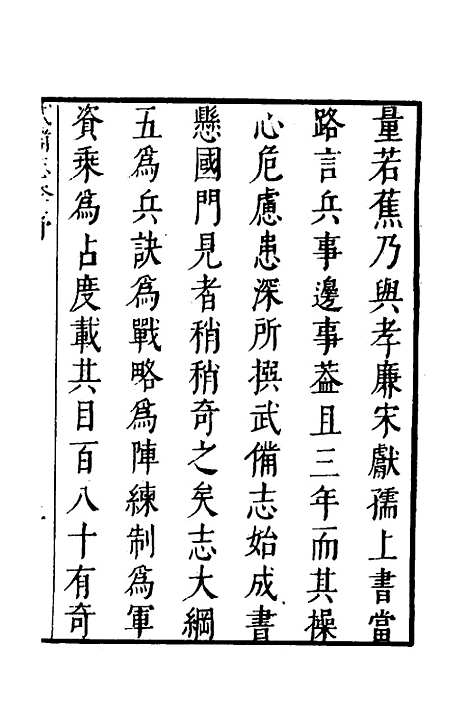 量若蕉乃與孝廉宋獻孺上書當
路言兵事邊事葢且三年而其操
心危慮患深所撰武備志始成書
懸國門見者稍稍奇之矣志大綱
五為兵訣為戰略為陣練制為軍
資乘為占度載其目百八十有奇
武備志序